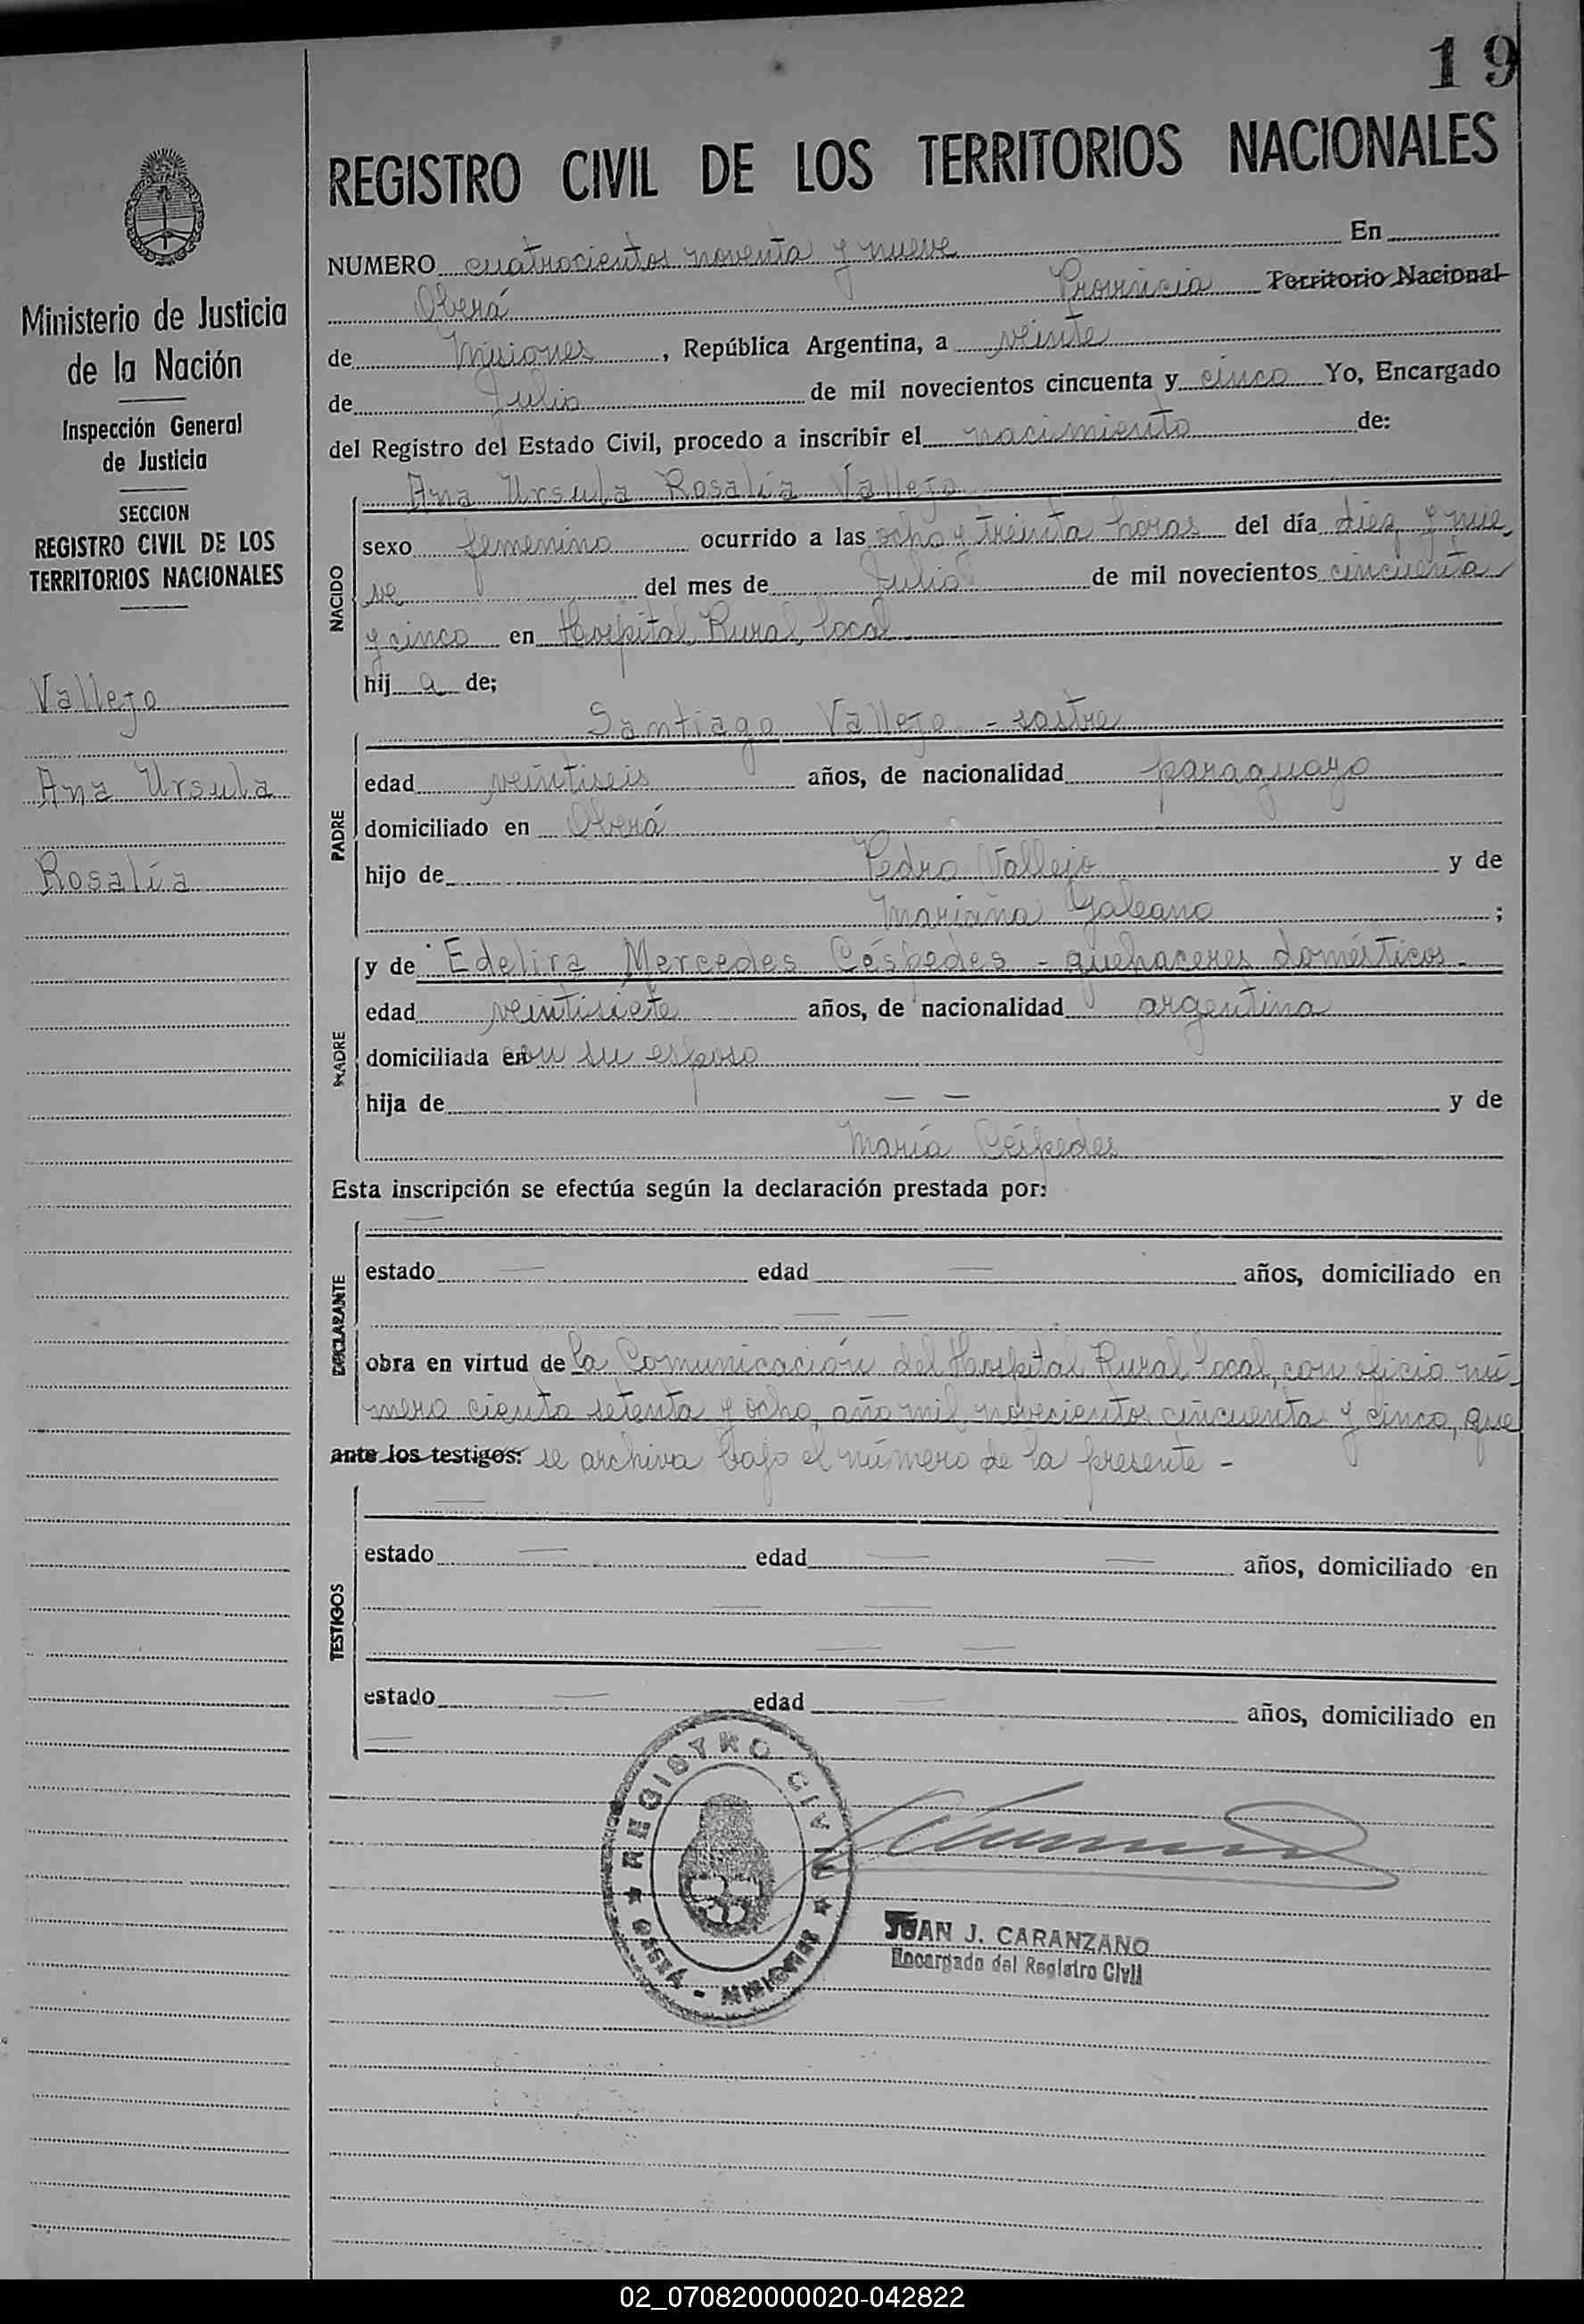 19
REGISTRO CIVIL DE LOS TERRITORIOS NACIONALES
NUMERO cuatrocientos noventa y nueve En
Oberá Provincia Territorio Nacional
de Misiones, República Argentina, a veinte
de Julio de mil novecientos cincuenta y cinco Yo, Encargado
del Registro del Estado Civil, procedo a inscribir el nacimiento de:
Ministerio de Justicia
de la Nación
Inspección General
de Justicia
SECCION
REGISTRO CIVIL DE LOS
TERRITORIOS NACIONALES
Vallejo
Ana Ursula
Rosalía
NACIDO
Ana Ursula Rosalía Vallejo
sexo femenino ocurrido a las ocho y treinta horas del día diez y nue
ve del mes de Julio de mil novecientos cincuenta
y cinco en Hospital Rural, local
hij a de;
PADRE
Santiago Vallejo - sastre
edad veintiseis años, de nacionalidad paraguayo
domiciliado en Oberá
hijo de Pedro Vallejo y de
Galeano;
MADRE
y de Edelira Mercedes Céspedes - quehaceres domésticos -
edad veintisiete años, de nacionalidad argentina
domiciliada en con su esposo
hija de — — y de
María Céspedes
Esta inscripción se efectúa según la declaración prestada por:
DECLARANTE
—
estado — edad — años, domiciliado en
— —
obra en virtud de la Comunicación del Hospital Rural local, con oficio nú-
mero ciento setenta y ocho, año mil novecientos cincuenta y cinco, que
ante los testigos: se archiva bajo el número de la presente -
TESTIGOS
—
estado — edad — — años, domiciliado en
— —
— —
estado — edad — años, domiciliado en
—
REGISTRO CIVIL
OBERÁ - MISIONES
JUAN J. CARANZANO
Encargado del Registro Civil
02_070820000020-042822